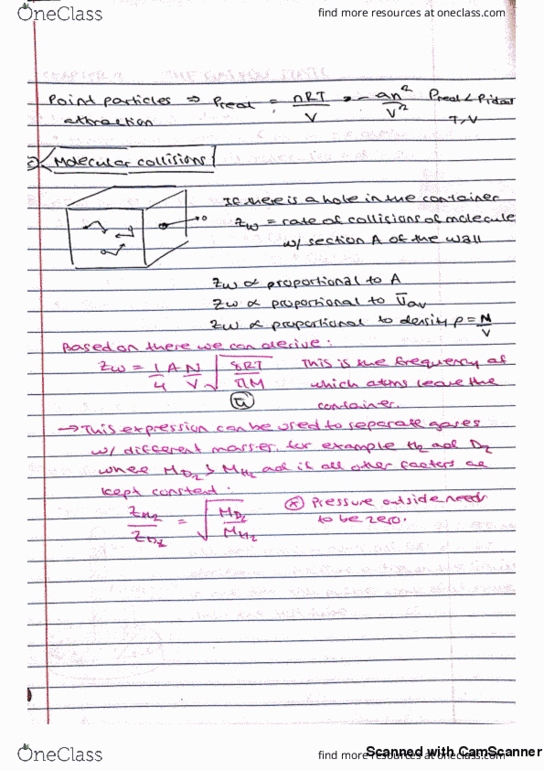 OneClass
find more resources at oneclass.com
Point particles ⇒ Preal = nRT/V - an²/V² Preal < Pideal
attraction T, V
Molecular collisions
If there is a hole in the container
Zw = rate of collisions of molecule
w/ section A of the wall
Zw ∝ proportional to A
Zw ∝ proportional to Ūav
Zw ∝ proportional to density ρ = N/V
Based on there we can derive:
Zw = 1/4 A N/V √(8RT/πM) This is the frequency of
which atoms leave the
ū container.
→ This expression can be used to separate gases
w/ different masses, for example H₂ and D₂
where MD₂ > MH₂ ad if all other factors are
kept constant.
ZH₂/ZD₂ = √(MD₂/MH₂) * Pressure outside needs
to be zero.
OneClass
find more resources at oneclass.com
Scanned with CamScanner